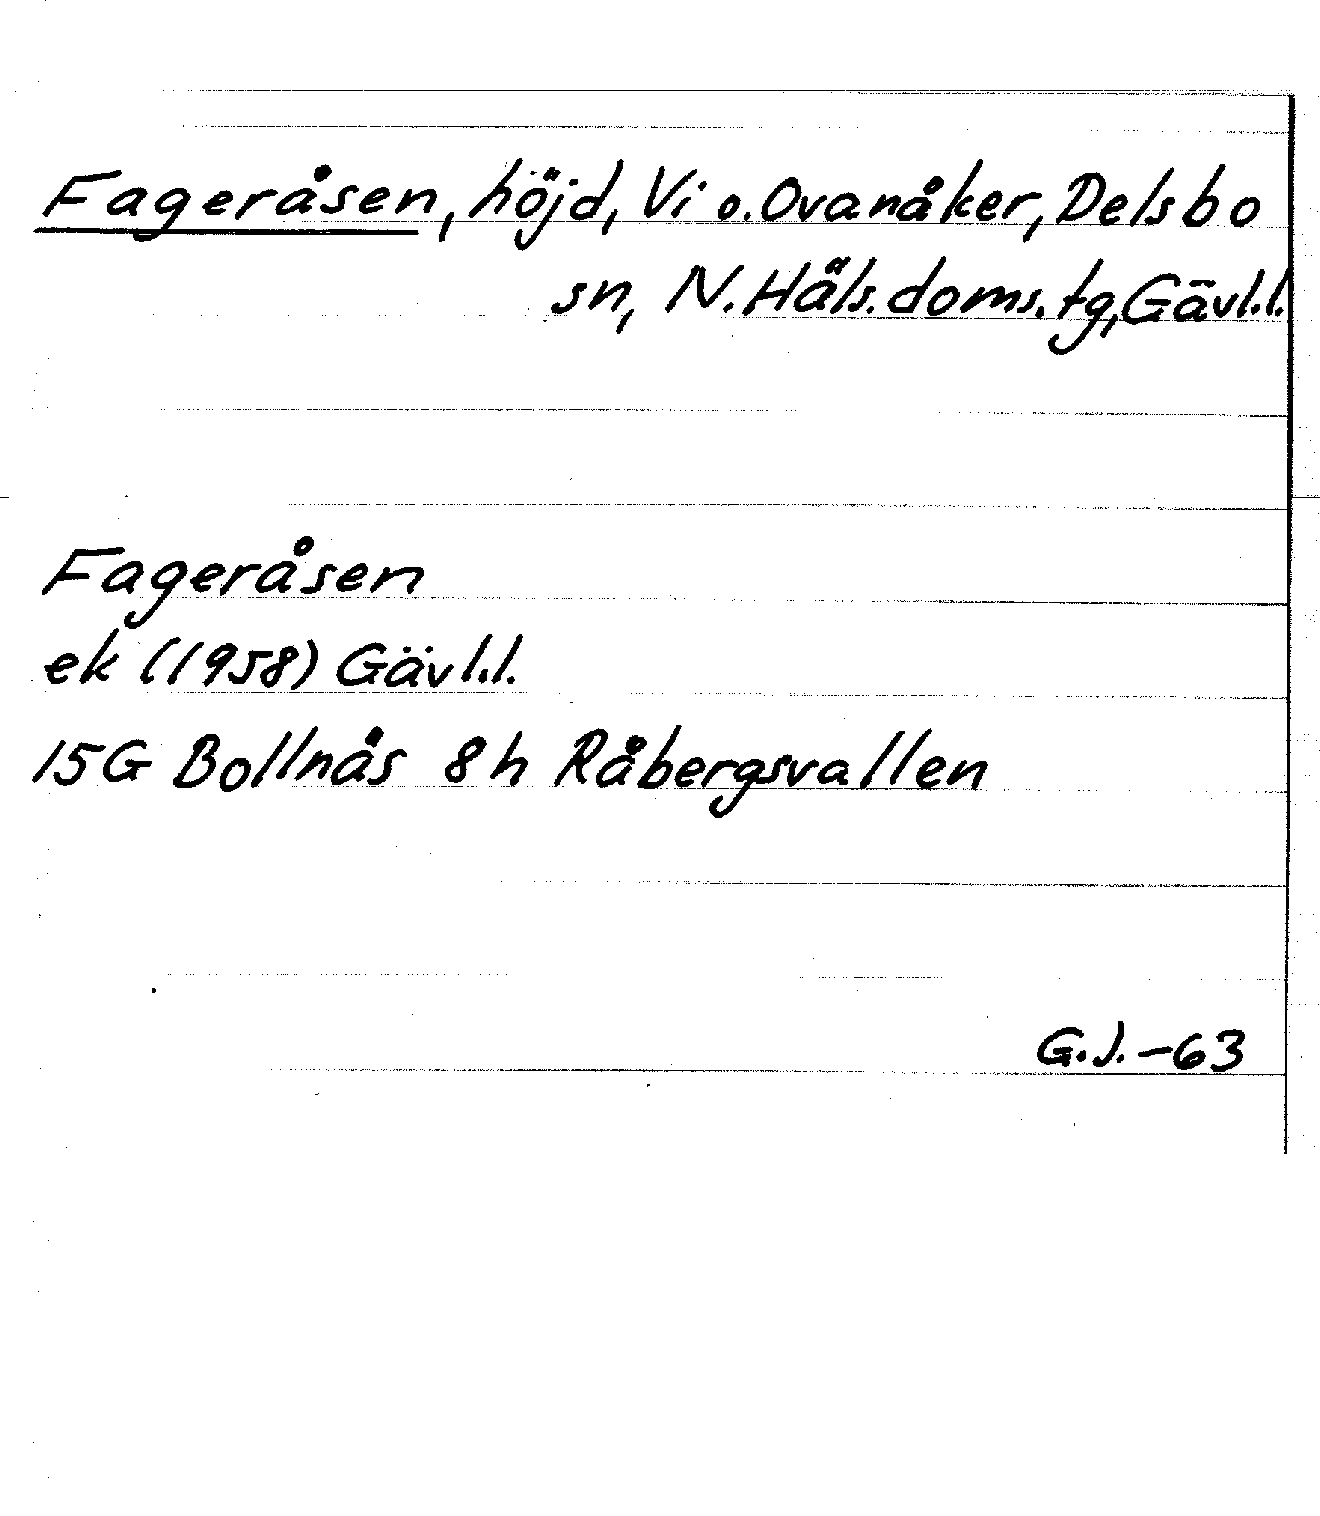 Fageråsen, höjd, Vi o. Ovanåker, Delsbo
sn, N. Häls. doms. tg, Gävl.l.
Fageråsen
ek (1958) Gävl.l.
15G Bollnäs 8h Råbergsvallen
G.J.-63